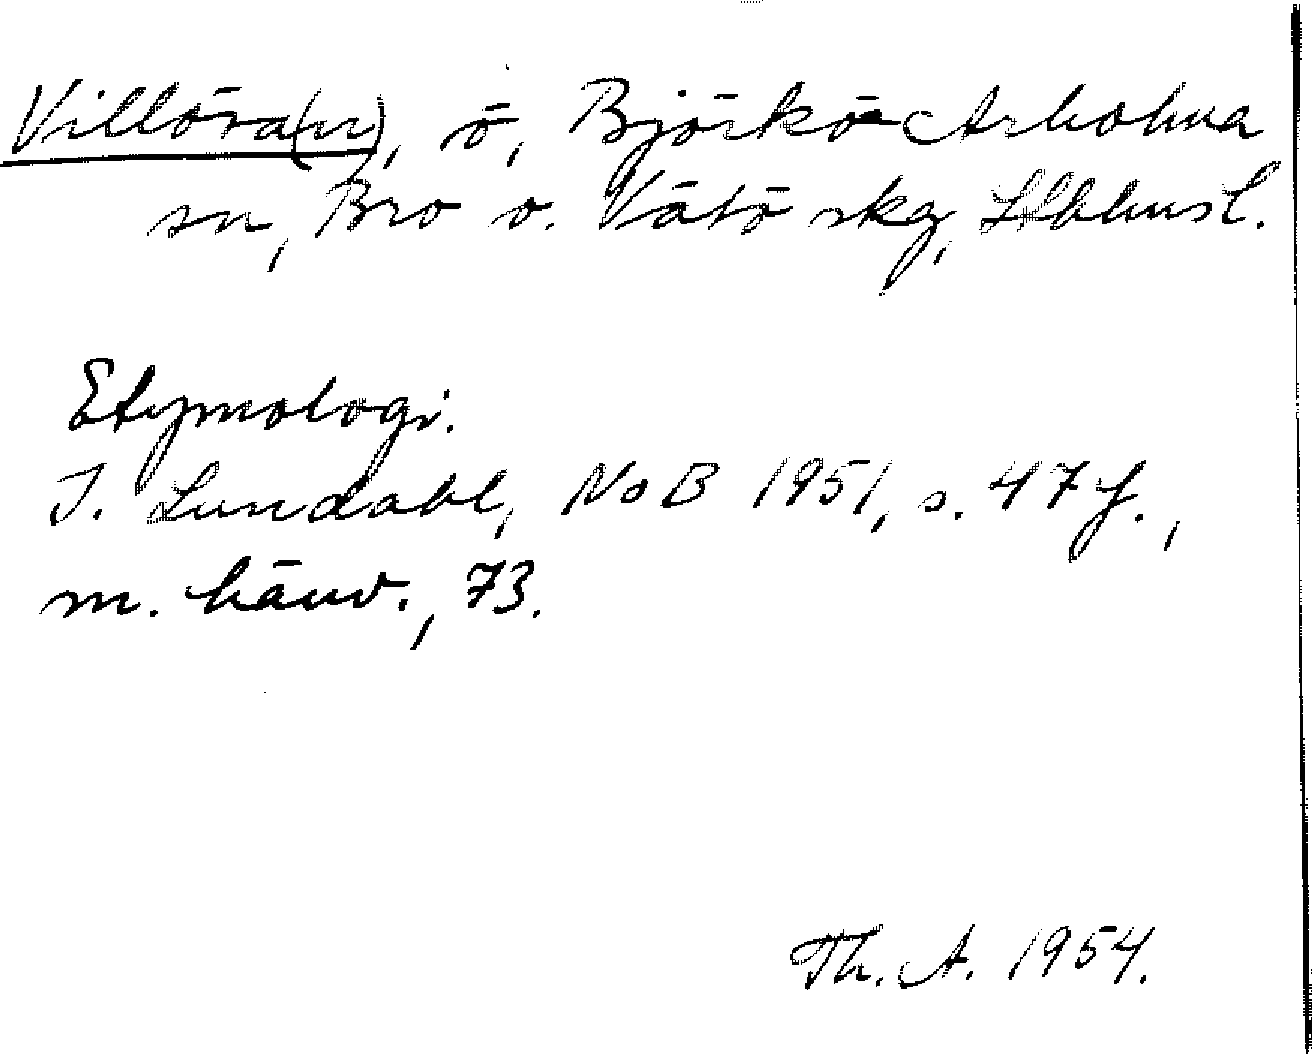 Villöra(n), ö, Björkö-Arholma
sn, Bro o. Vätö skg, Sthlms l.
Etymologi.
I. Lundahl, NoB 1951, s. 47 f.,
m. hänv., 73.
Th. A. 1954.